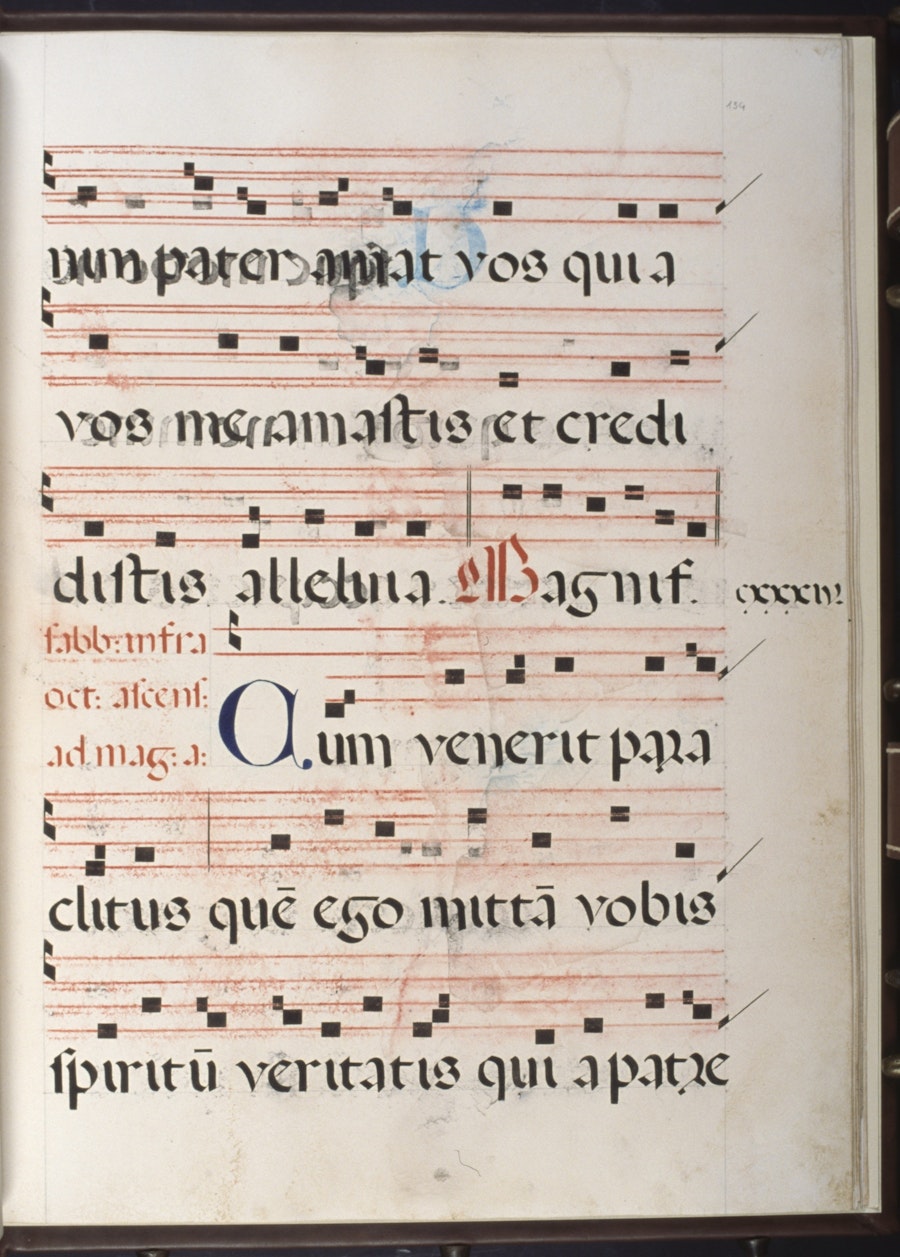 134
num pater amat vos quia
vos me amastis et credi
distis alleluia. Magnif. cxxxiv.
sabb: infra
oct: ascens:
ad mag: a:
Cum venerit para
clitus quē ego mittā vobis
spiritū veritatis qui a patre